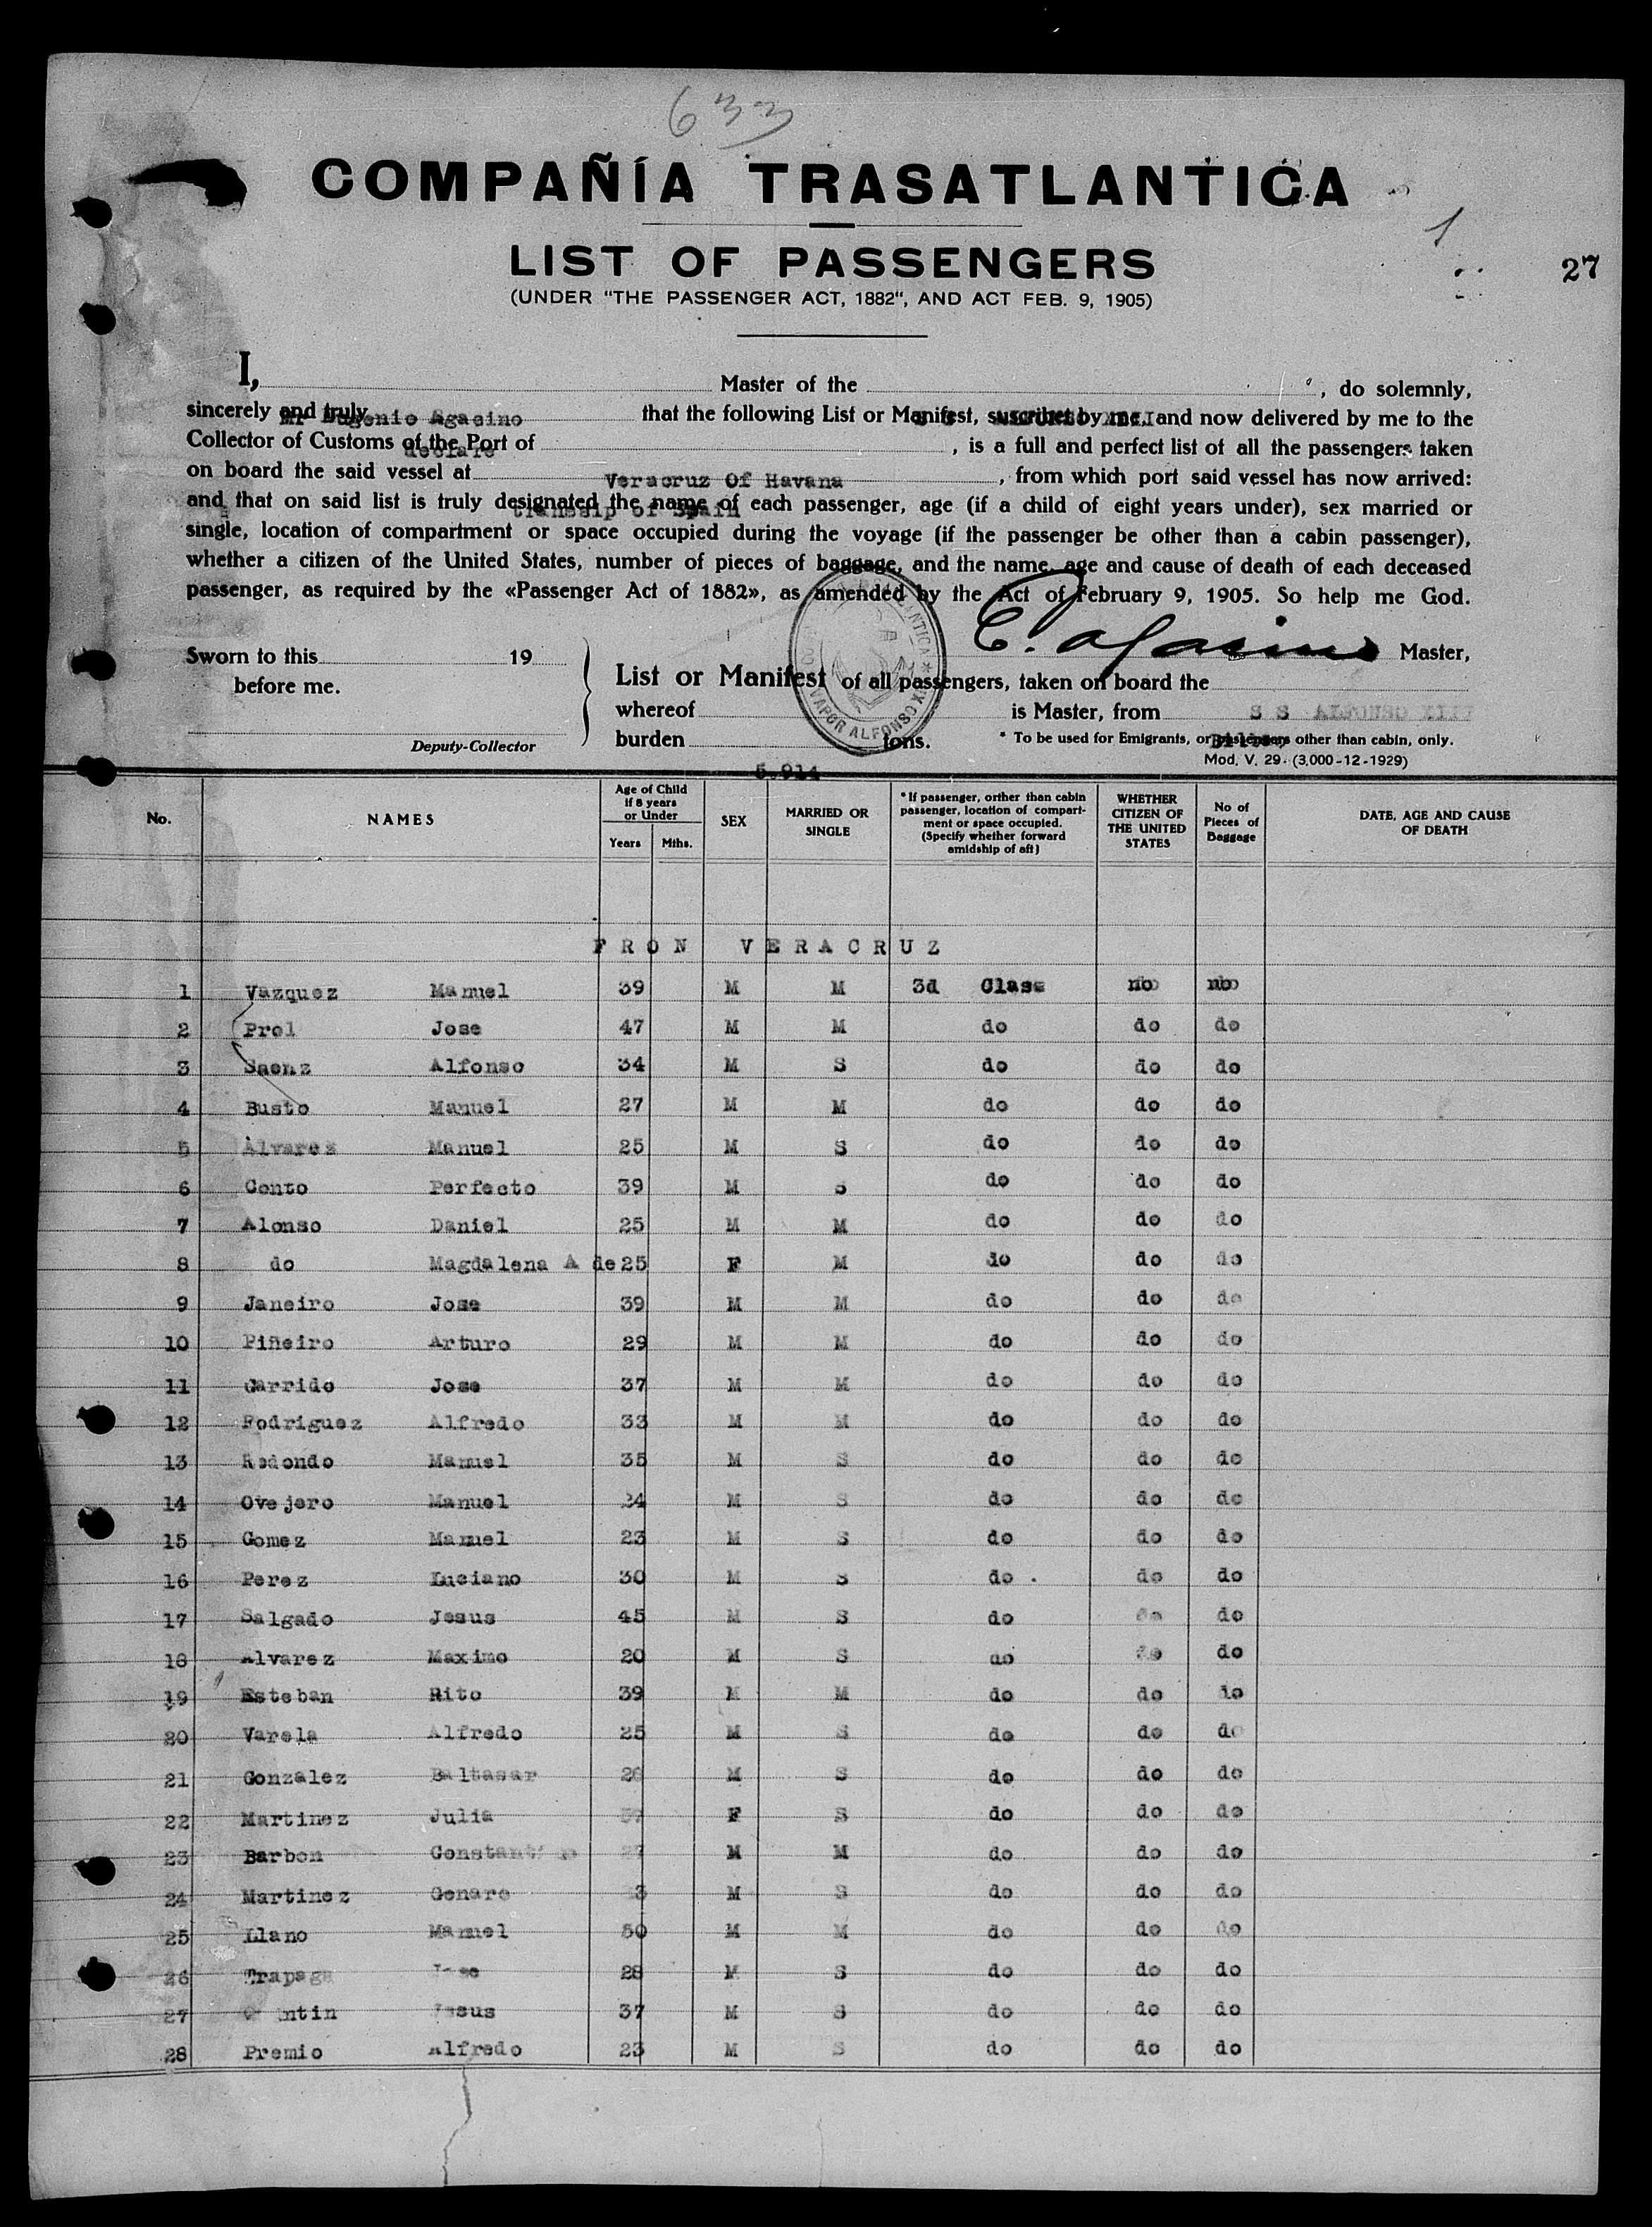 633
COMPAÑÍA TRASATLANTICA
1
LIST OF PASSENGERS
27
(UNDER "THE PASSENGER ACT, 1882", AND ACT FEB. 9, 1905)
I, Master of the , do solemnly,
sincerely and truly that the following List or Manifest, suscribet by me, and now delivered by me to the
Mr Eugenio Agacino
Collector of Customs of the Port of , is a full and perfect list of all the passengers taken
declare
on board the said vessel at , from which port said vessel has now arrived:
Veracruz Of Havana
and that on said list is truly designated the name of each passenger, age (if a child of eight years under), sex married or
of Spain
single, location of compartment or space occupied during the voyage (if the passenger be other than a cabin passenger),
whether a citizen of the United States, number of pieces of baggage, and the name, age and cause of death of each deceased
passenger, as required by the «Passenger Act of 1882», as amended by the Act of February 9, 1905. So help me God.
E. Agacino
Sworn to this 19 Master,
before me. List or Manifest of all passengers, taken on board the
whereof is Master, from S S ALFONSO XIII
VAPOR ALFONSO XIII
burden tons. * To be used for Emigrants, or passengers other than cabin, only.
Bilbao
Deputy-Collector Mod. V. 29. (3,000-12-1929)
5.914
No. NAMES Age of Child if 8 years or Under Years Mths. SEX MARRIED OR SINGLE * If passenger, orither than cabin passenger, location of compartment or space occupied. (Specify whether forward amidship of aft) WHETHER CITIZEN OF THE UNITED STATES No of Pieces of Baggage DATE, AGE AND CAUSE OF DEATH
FRON VERACRUZ
1 Vazquez Manuel 39 M M 3d Class no no
2 Prol Jose 47 M M do do do
3 Saenz Alfonso 34 M S do do do
4 Busto Manuel 27 M M do do do
5 Alvarez Manuel 25 M S do do do
6 Conzo Perfecto 39 M S do do do
7 Alonso Daniel 25 M M do do do
8 do Magdalena A de 25 F M do do do
9 Janeiro Jose 39 M M do do do
10 Piñeiro Arturo 29 M M do do do
11 Garrido Jose 37 M M do do do
12 Rodriguez Alfredo 33 M M do do do
13 Redondo Manuel 35 M S do do do
14 Ovejero Manuel 24 M S do do do
15 Gomez Manuel 23 M S do do do
16 Perez Luciano 30 M S do do do
17 Salgado Jesus 45 M S do do do
18 Alvarez Maximo 20 M S do do do
19 Esteban Rito 39 M M do do do
20 Varela Alfredo 25 M S do do do
21 Gonzalez Baltasar 26 M S do do do
22 Martinez Julia F S do do do
23 Barbon Constantino M M do do do
24 Martinez Genaro M S do do do
25 Llano Manuel 50 M M do do do
26 Trapaga Jose 28 M S do do do
27 Jesus 37 M S do do do
28 Premio Alfredo 23 M S do do do